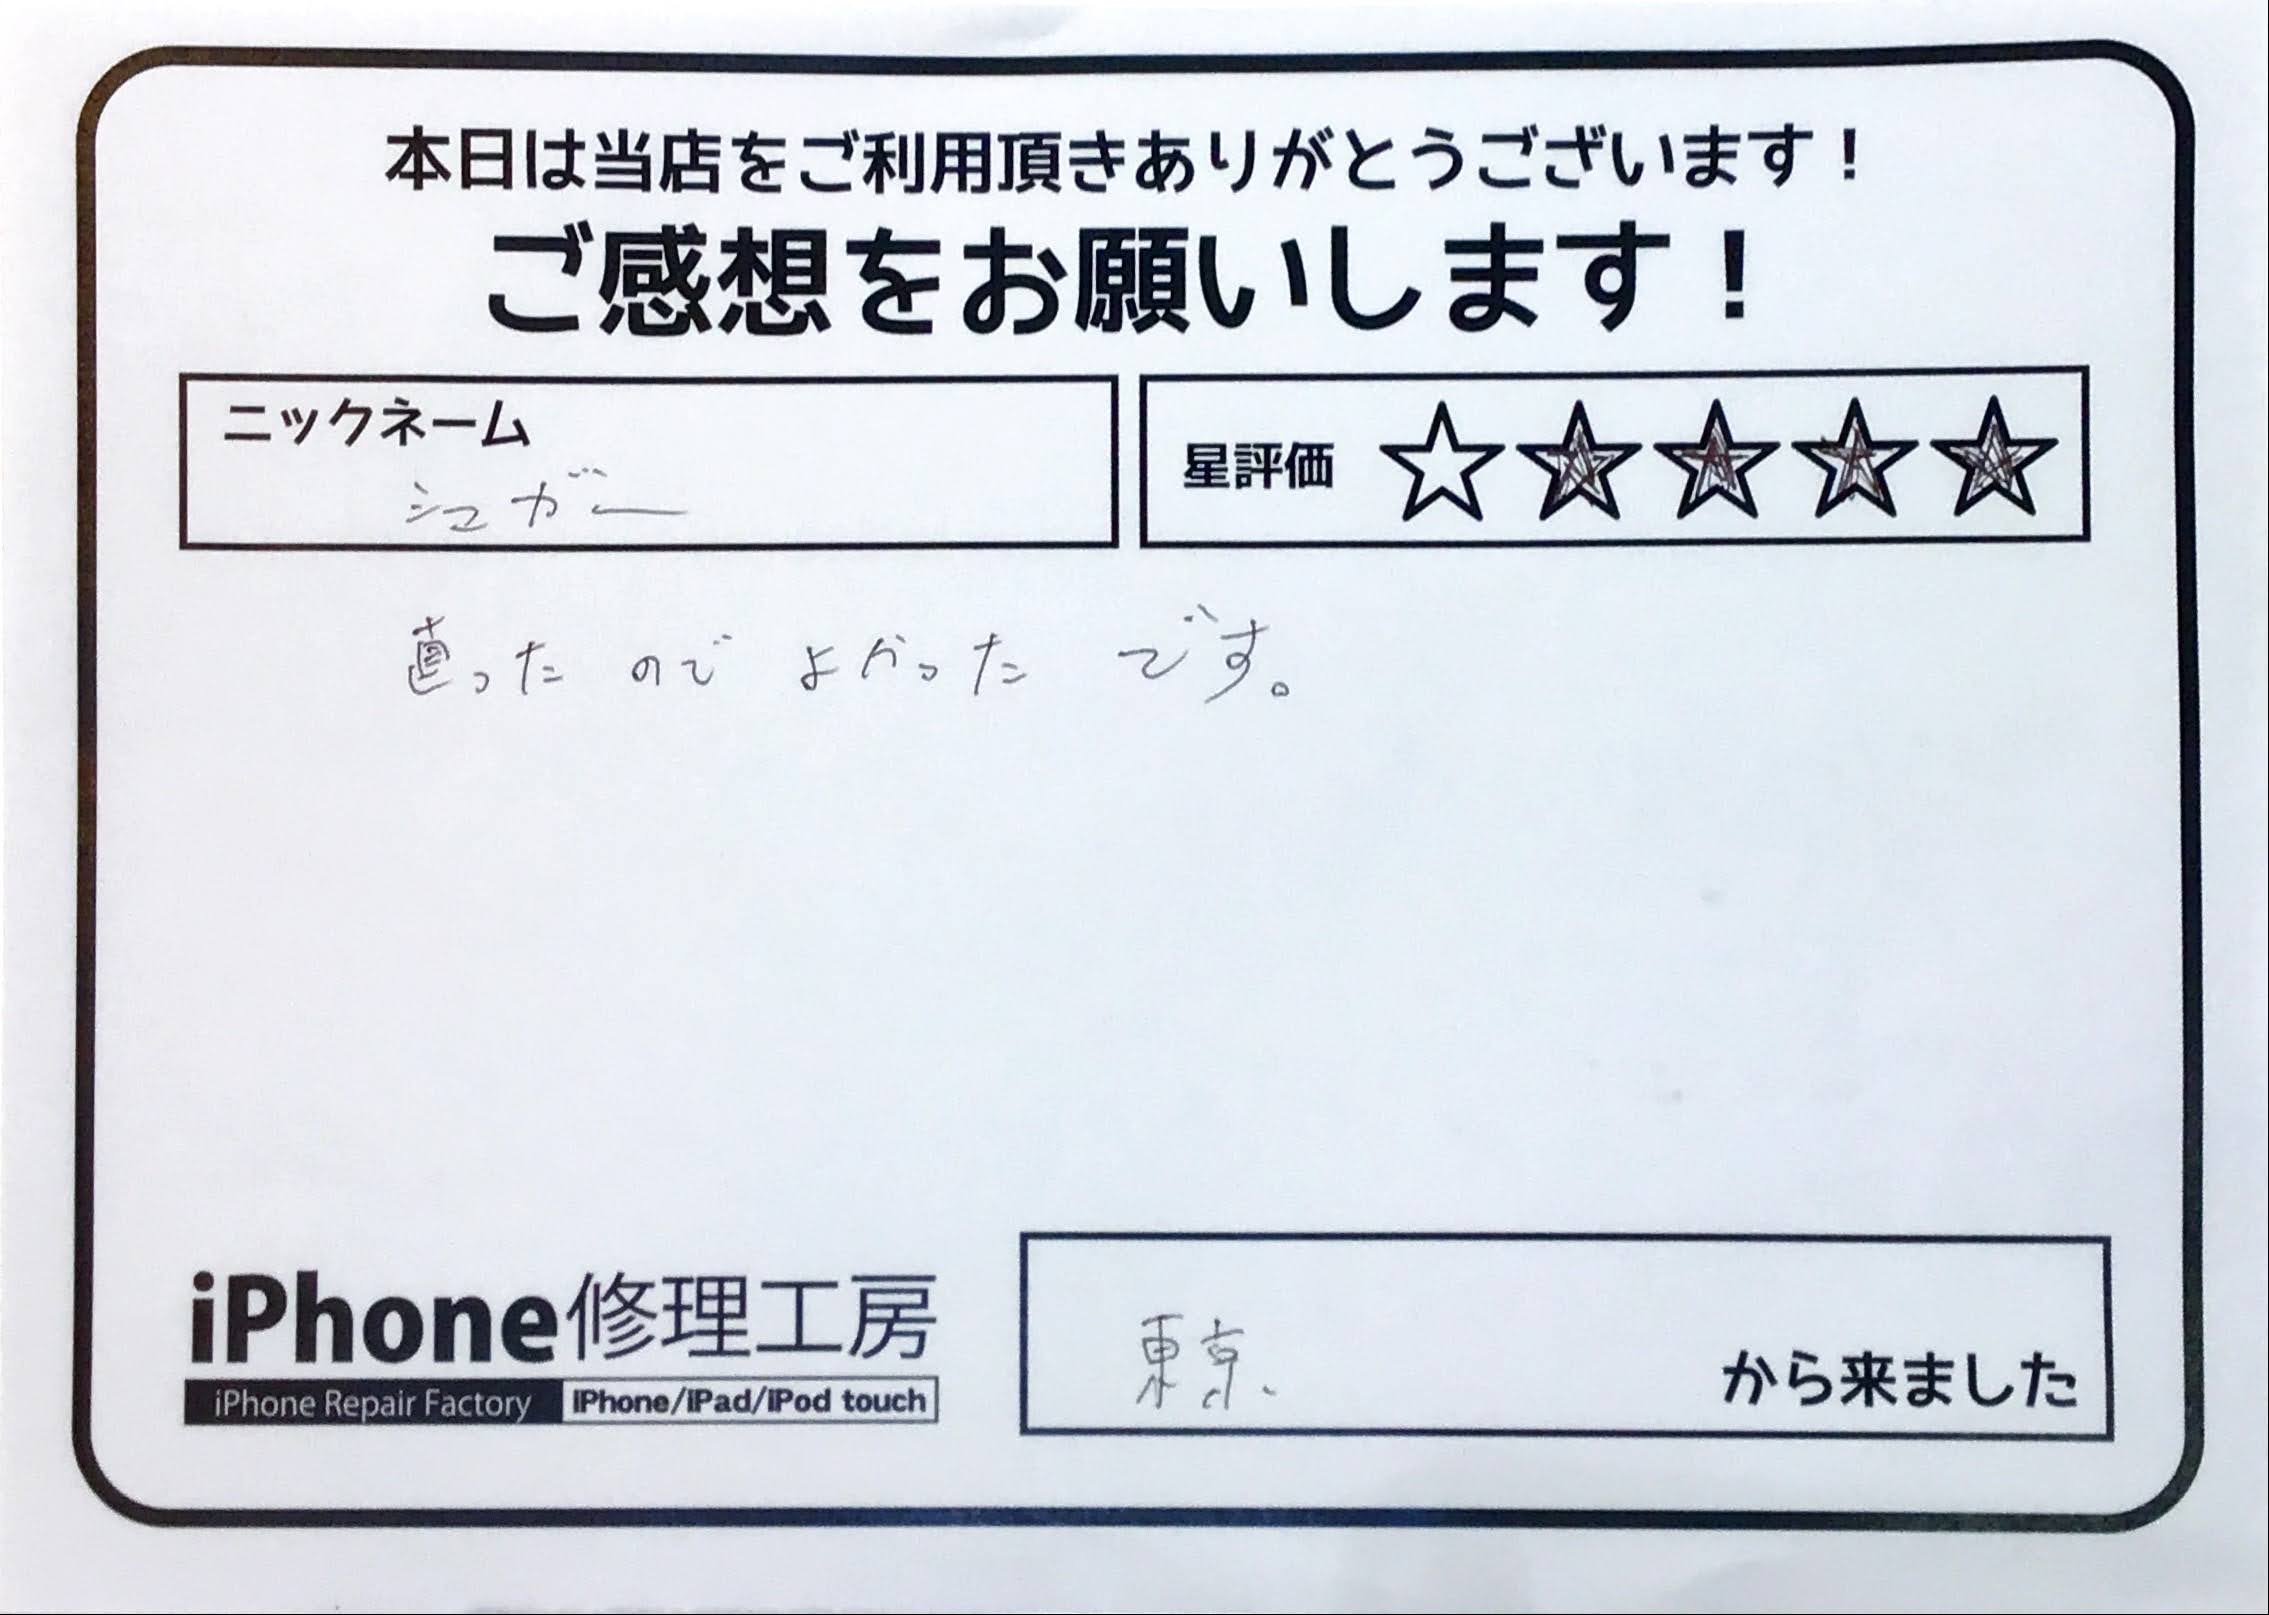 本日は当店をご利用頂きありがとうございます！
ご感想をお願いします！
ニックネーム
シュガー
星評価 ☆★★★★
直ったのでよかったです。
iPhone修理工房
iPhone Repair Factory iPhone/iPad/iPod touch
東京
から来ました